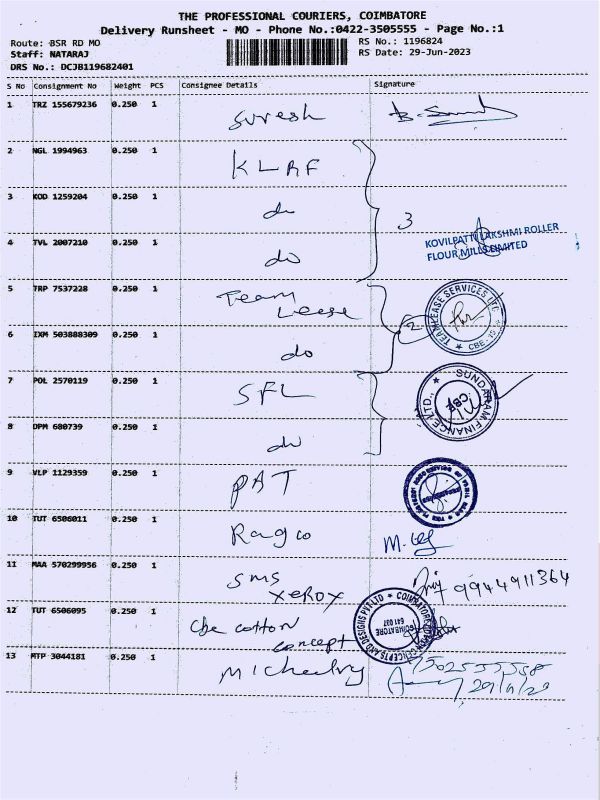 THE PROFESSIONAL COURIERS, COIMBATORE
Delivery Runsheet - MO - Phone No.:0422-3505555 - Page No.:1
Route: BSR RD MO
RS No.: 1196824
Staff: NATARAJ
RS Date: 29-Jun-2023
DRS No.: DCJB119682401
S No Consignment No Weight PCS Consignee Details Signature
1 TRZ 155679236 0.250 1 Suresh
2 NGL 1994963 0.250 1 KLRF
3 KOD 1259204 0.250 1 do 3
4 TVL 2007210 0.250 1 do
KOVILPATTI LAKSHMI ROLLER
FLOUR MILLS LIMITED
5 TRP 7537228 0.250 1 Team
Lease
2
TEAMLEASE SERVICES LTD. CBE
6 IXM 503888309 0.250 1 do
7 POL 2570119 0.250 1 SFL
SUNDARAM FINANCE LTD., CBE
8 DPM 680739 0.250 1 do
9 VLP 1129359 0.250 1 PAT
10 TUT 6506011 0.250 1
11 MAA 570299956 0.250 1 SMS
XEROX
9944911364
12 TUT 6506095 0.250 1 Cbe cotton
concept
COIMBATORE COTTON CONCEPTS AND DESIGNS PVT LTD
COIMBATORE
641 037
13 MTP 3044181 0.250 1